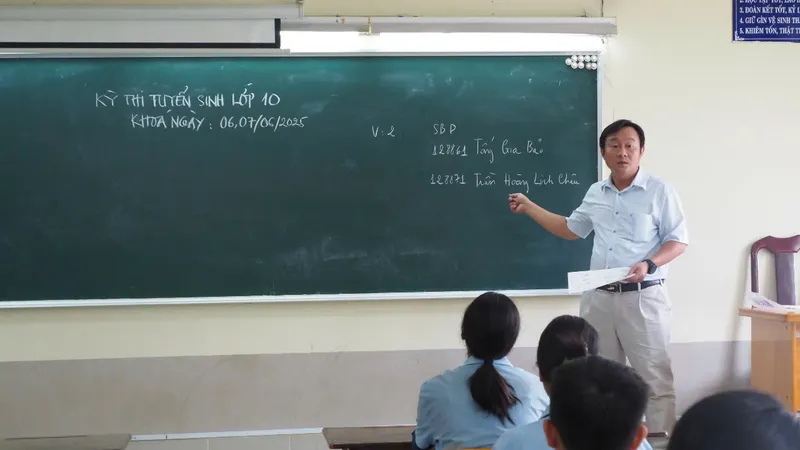 KỲ THI TUYỂN SINH LỚP 10
KHÓA NGÀY : 06,07/06/2025
V : 2
SBD
128861 Tống Gia Bảo
128871 Trần Hoàng Linh Châu
3. ĐOÀN KẾT TỐT, KỶ L
4. GIỮ GÌN VỆ SINH TH
5. KHIÊM TỐN, THẬT TH